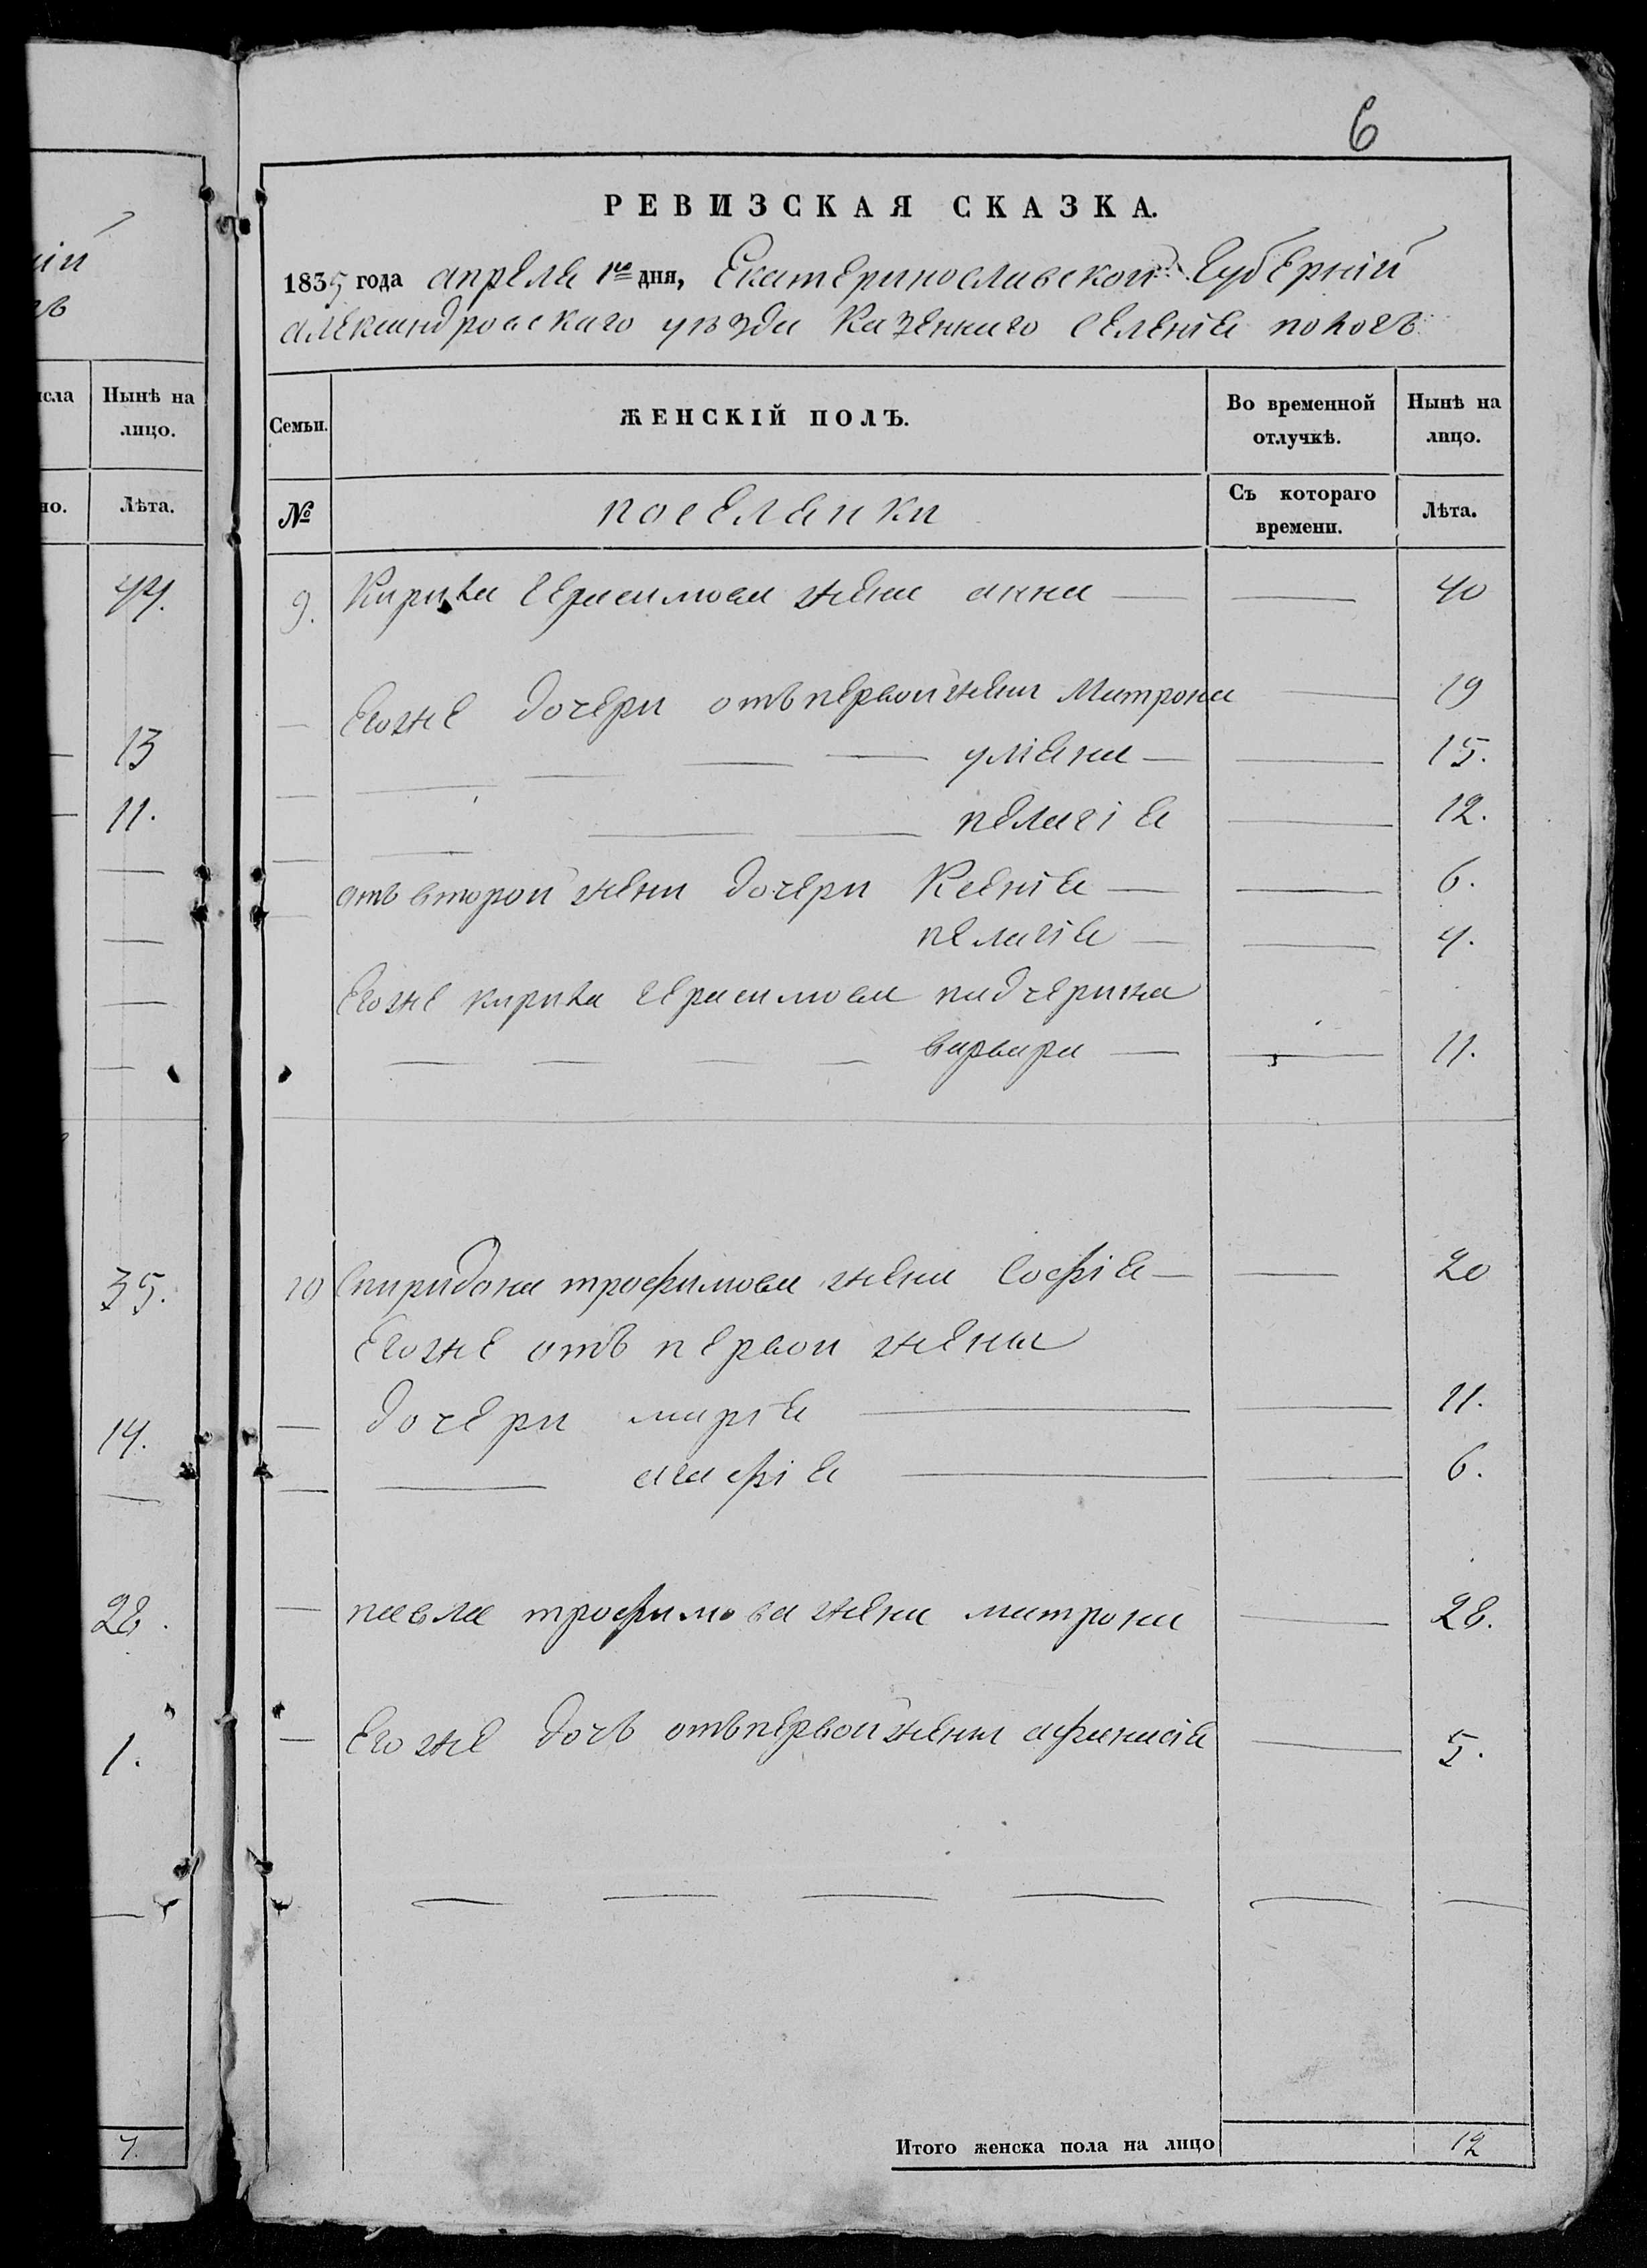 6
РЕВИЗСКАЯ СКАЗКА.
1835 года апреля 1го дня, Екатеринославской Губерніи
александровскаго уѣзда Казеннаго селенія пологъ
Семьи.
ЖЕНСКІЙ ПОЛЪ.
Во временной отлучкѣ.
Нынѣ на лицо.
№
поселянки
Съ котораго времени.
Лѣта.
9. Кирика герасимова жена анна — — 40
— Егоже дочери отъ первой жени Матрона — 19
— улiана — — 15.
— пелагія — 12.
— отъ второй жени дочери Ксенія — — 6.
пелагія — — 4.
Егоже кирика герасимова падчерика
варвара — — 11.
10 Спиридона трофимова жена Софія — — 20
Егоже отъ первои жены
— дочери марія — — 11.
— агафія — — 6.
— павла трофимова жена матрона — 28.
— Егоже дочь отъ первой жены афанасія — 5.
Итого женска пола на лицо 12
ній
въ
исла
Нынѣ на лицо.
но.
Лѣта.
44.
13
11.
35.
14.
28.
1.
7.